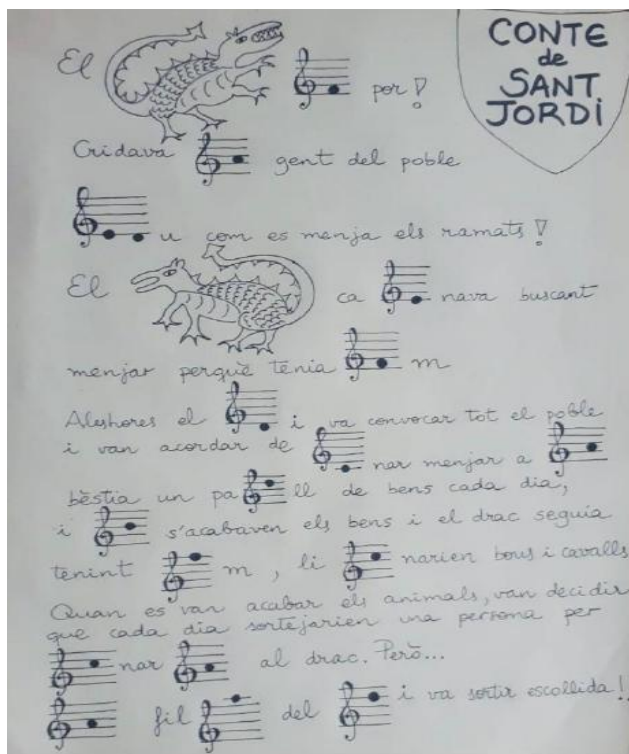 CONTE
de
SANT
JORDi
El por!
Cridava gent del poble
u com es menja els ramats!
El ca nava buscant
menjar perquè tenia m
Aleshores el i va convocar tot el poble
i van acordar de nar menjar a
bèstia un pa ll de bens cada dia,
i s'acabaven els bens i el drac seguia
tenint m, li narien bous i cavalls
Quan es van acabar els animals, van decidir
que cada dia sortejarien una persona per
nar al drac. Però...
fil del i va sortir escollida!